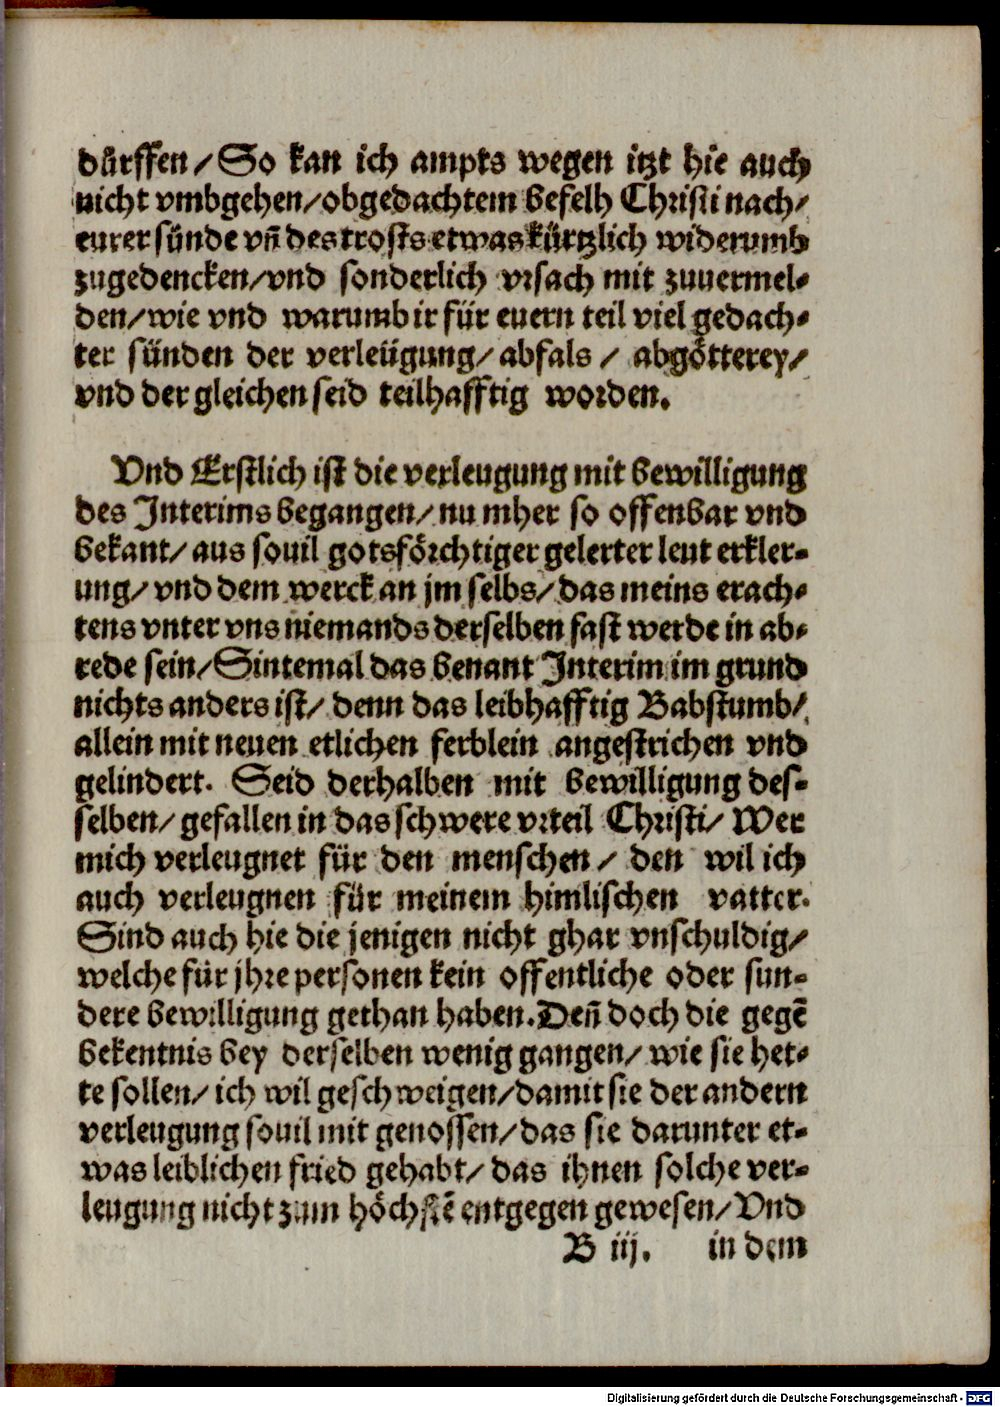 dürffen/ So kan ich ampts wegen itzt hie auch
nicht vmbgehen/ obgedachtem befelh Christi nach/
eurer sünde vñ des trosts etwas kürtzlich widerumb
zugedencken/ vnd sonderlich vrsach mit zuuermel-
den/ wie vnd warumb ir für euern teil viel gedach-
ter sünden der verleügung/ abfals / abgötterey/
vnd der gleichen seid teilhafftig worden.
Vnd Erstlich ist die verleugung mit bewilligung
des Interims begangen/ nu mher so offenbar vnd
bekant/ aus souil gotsförchtiger gelerter leut erkler-
ung/ vnd dem werck an jm selbs/ das meins erach-
tens vnter vns niemands derselben fast werde in ab-
rede sein/ Sintemal das benant Interim im grund
nichts anders ist/ denn das leibhafftig Babstumb/
allein mit neuen etlichen ferblein angestrichen vnd
gelindert. Seid derhalben mit bewilligung des-
selben/ gefallen in das schwere vrteil Christi/ Wer
mich verleugnet für den menschen / den wil ich
auch verleugnen für meinem himlischen vatter.
Sind auch hie die jenigen nicht ghar vnschuldig/
welche für jhre personen kein offentliche oder sun-
dere bewilligung gethan haben. Deñ doch die gegē
bekentnis bey derselben wenig gangen/ wie sie het-
te sollen/ ich wil geschweigen/ damit sie der andern
verleugung souil mit genossen/ das sie darunter et-
was leiblichen fried gehabt/ das ihnen solche ver-
leugung nicht zum höchstē entgegen gewesen/ Vnd
B iij. in dem
Digitalisierung gefördert durch die Deutsche Forschungsgemeinschaft - DFG